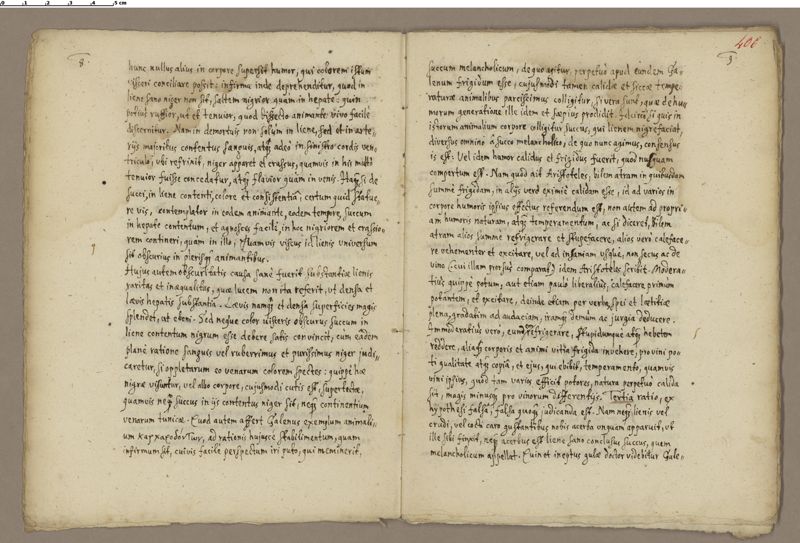 0 1 2 3 4 5 cm
8.
hunc nullus alius in corpore supersit humor, qui colorem istum
visceri conciliare possit: infirma inde deprehenditur, quod in
liene sano niger non sit, saltem nigrior quam in hepate: quin
potius ruffior, ut et tenuior, quod dissecto animante vivo facile
discernitur. Nam in demortuis non solum in liene, sed et in arte-
rijs maioribus contentus sanguis, atq; adeo in sinistro cordis ven-
triculo, ubi refrixit, niger apparet et crassus, quamvis in his multò
tenuior fuisse concedatur, atq; flavior quàm in venis. Itaq; si de
succi, in liene contenti, colore et consistentia, certum quid statue-
re vis, contemplator in eodem animante, eodem tempore, succum
in hepate contentum, et agnosces facilè, in hoc nigriorem et crassio-
rem contineri, quàm in illo; Quamvis viscus id lienis universum
sit obscurius in plerisq; animantibus.
Hujus autem obscuritatis causa sanè fuerit substantiæ lienis
raritas et inæqualitas, quæ lucem non ita referit, ut densa et
lævis hepatis substantia. Lævis namq; et densa superficies magis
splendet, ut ebeni. Sed neque color visceris obscurus succum in
liene contentum nigrum esse debere satis convincit, cum eadem
planè ratione sanguis vel ruberrimus et purissimus niger judi-
caretur, si oppletarum eo venarum colorem spectes: quippe hæ
nigræ visuntur, vel albo corpore, cujusmodi cutis est, supertectæ,
quamvis neq; succus in ijs contentus niger sit, neq; continentium
venarum tunicæ. Quod autem affert Galenus exemplum animali-
um καρχαροδόντων, ad rationis hujusce stabilimentum, quam
infirmum sit, cuivis facile perspectum iri puto, qui meminerit,
406
9
succum melancholicum, de quo agitur, perpetuò apud eundem Ga-
lenum frigidum esse; cujusmodi tamen calidæ et siccæ tempe-
raturæ animalibus parcissimus colligitur, si vera sunt, quæ de hu-
morum generatione ille idem et sæpius prodidit. si quis in
istorum animalium corpore colligitur succus, qui lienem nigrefaciat,
diversus omnino à succo melancholico, de quo nunc agimus, censendus
is est: Vel idem humor calidus et frigidus fuerit, quod nusquam
compertum est. Nam quod ait Aristoteles, bilem atram in quibusdam
summè frigidam, in alijs verò eximiè calidam esse, id ad varios in
corpore humoris ipsius effectus referendum est, non autem ad propri-
am humoris naturam, atq; temperamentum, ac si diceret, bilem
atram alios summè refrigerare et stupefacere, alios verò caleface-
re vehementer et excitare, vel ad insaniam usque, non secus ac de
vino (cui illam prorsus comparat) idem Aristoteles scribit. Modera-
tius quippe potum, aut etiam paulò liberalius, calefacere primum
potantem, et excitare, deinde etiam per verba spei et lætitiæ
plena, gradatim ad audaciam, iramq; demum ac jurgia deducere.
Immoderatius verò, eundem refrigerare, stupidumque atq; hebetem
reddere, aliasq; corporis et animi vitia frigida invehere, pro vini po-
ti qualitate atq; copia, et ejus, qui ebibit, temperamento, quamvis
vini ipsius, quod tam varios efficit potores, natura perpetuò calida
sit, magis minusq; pro vinorum differentijs. Tertia ratio, ex
hypothesi falsa, falsa quoq; judicanda est. Nam neq; lienis vel
crudi, vel cocti caro gustantibus nobis acerba unquam apparuit, ut
ille sibi finxit, neq; acerbus est liene sano conclusus succus, quem
melancholicum appellat. Quin et ineptus gulæ doctor videbitur Gale-